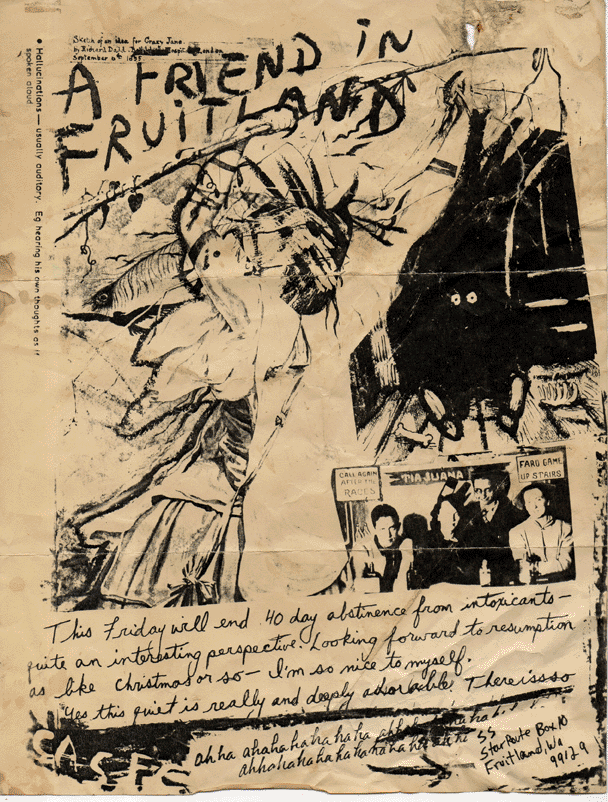 Sketch of an idea for Crazy Jane.
by Richard Dadd. Hospital London
September 6th 1855.
A FRIEND IN
FRUITLAND
• Hallucinations — usually auditory. Eg hearing his own thoughts as if
spoken aloud
CALL AGAIN
AFTER THE
RACES
TIAJUANA
FARO GAME
UP STAIRS
This Friday will end 40 day abstinence from intoxicants—
quite an interesting perspective. Looking forward to resumption
as like Christmas or so — I'm so nice to myself.
Yes this quiet is really and deeply adorbable! Thereissso
ahha ahahahahahaha ahhahahahaha
ahhahahahahahahahahahaha
Star Route Box 10
Fruitland, Wa
99129